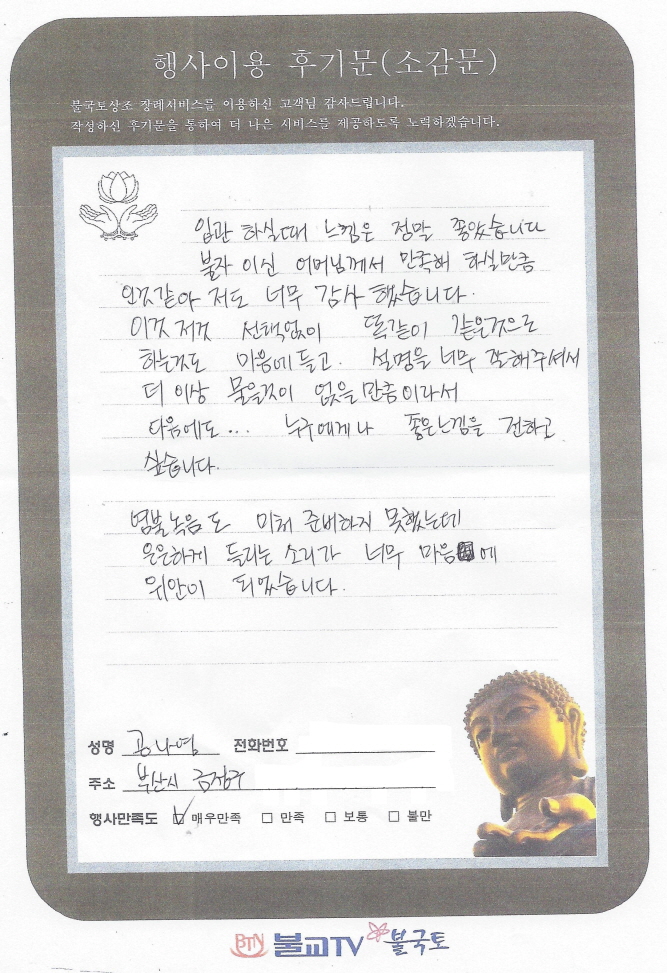 행사이용 후기문(소감문)
불국토상조 장례서비스를 이용하신 고객님 감사드립니다.
작성하신 후기문을 통하여 더 나은 서비스를 제공하도록 노력하겠습니다.
입관 하실때 느낌은 정말 좋았습니다
불자 이신 어머님께서 만족해 하실만큼
인것같아 저도 너무 감사 했습니다.
이것 저것 선택없이 똑같이 같은것으로
하는것도 마음에 들고. 설명을 너무 잘해주셔서
더 이상 물을것이 없을 만큼이라서
다음에도... 누구에게나 좋은느낌을 전하고
싶습니다.
염불녹음도 미처 준비하지 못했는데
은은하게 들리는 소리가 너무 마음에
위안이 되었습니다.
성명 공나영 전화번호
주소 부산시 금정구
행사만족도 ☑ 매우만족 □ 만족 □ 보통 □ 불만
BTN 불교TV 불국토